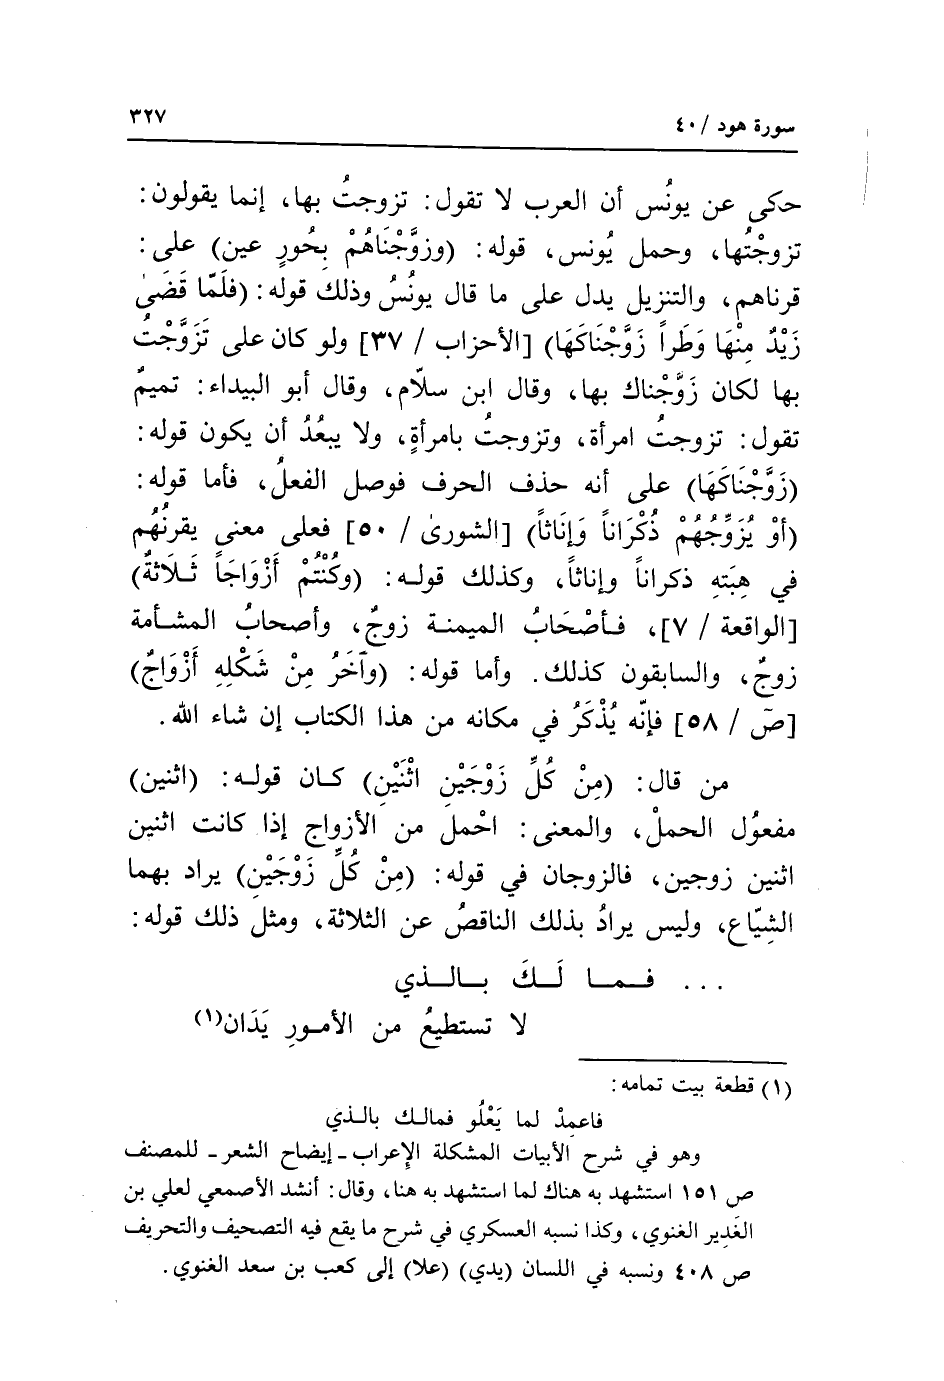 سورة هود / ٤٠
٣٢٧
حكى عن يونُس أن العرب لا تقول: تزوجتُ بها، إنما يقولون:
تزوجْتُها، وحمل يُونس، قوله: (وزوَّجْنَاهُمْ بِحُورٍ عين) على:
قرناهم، والتنزيل يدل على ما قال يونُسُ وذلك قوله: (فَلَمّا قَضَىٰ
زَيْدٌ مِنْهَا وَطَراً زَوَّجْنَاكَهَا) [الأحزاب / ٣٧] ولو كان على تَزَوَّجْتُ
بها لكان زَوَّجْناك بها، وقال ابن سلّام، وقال أبو البيداء: تميمٌ
تقول: تزوجتُ امرأة، وتزوجتُ بامرأةٍ، ولا يبعُدُ أن يكون قوله:
(زَوَّجْنَاكَهَا) على أنه حذف الحرف فوصل الفعلُ، فأما قوله:
(أوْ يُزَوِّجُهُمْ ذُكْرَاناً وَإِنَاثاً) [الشورىٰ / ٥٠] فعلى معنى يقرنُهُم
في هِبَتهِ ذكراناً وإناثاً، وكذلك قوله: (وكُنْتُمْ أزْوَاجَاً ثَلَاثَةً)
[الواقعة / ٧]، فأصْحَابُ الميمنة زوجٌ، وأصحابُ المشأمة
زوجٌ، والسابقون كذلك. وأما قوله: (وآخَرُ مِنْ شَكْلِهِ أَزْوَاجٌ)
[صَ / ٥٨] فإنّه يُذْكَرُ في مكانه من هذا الكتاب إن شاء الله.
من قال: (مِنْ كُلِّ زَوْجَيْنِ اثْنَيْنِ) كان قوله: (اثنين)
مفعوُل الحملْ، والمعنى: احْملَ من الأزواج إذا كانت اثنين
اثنين زوجين، فالزوجان في قوله: (مِنْ كُلِّ زَوْجَيْنِ) يراد بهما
الشِيّاع، وليس يرادُ بذلك الناقصُ عن الثلاثة، ومثل ذلك قوله:
... فما لَكَ بالذي
لا تستطيعُ من الأمورِ يَدَان(١)
(١) قطعة بيت تمامه:
فاعمِدْ لما يَعْلُو فمالك بالذي
وهو في شرح الأبيات المشكلة الإعراب ـ إيضاح الشعر ـ للمصنف
ص ١٥١ استشهد به هناك لما استشهد به هنا، وقال: أنشد الأصمعي لعلي بن
الغَدِير الغنوي، وكذا نسبه العسكري في شرح ما يقع فيه التصحيف والتحريف
ص ٤٠٨ ونسبه في اللسان (يدي) (علا) إلى كعب بن سعد الغنوي.